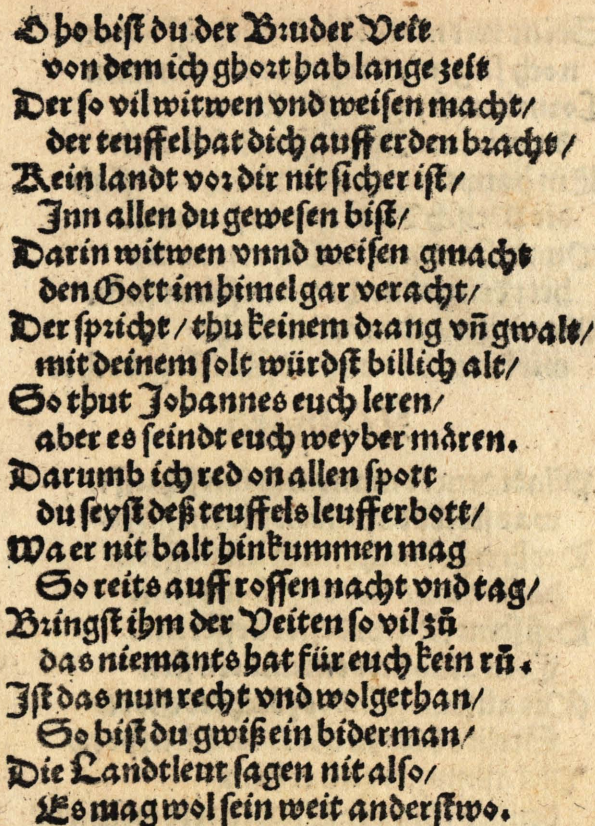 O ho bist du der Bruder Veit
von dem ich ghort hab lange zeit
Der so vil witwen vnd weisen macht/
der teuffel hat dich auff erden bracht/
Kein landt vor dir nit sicher ist/
Inn allen du gewesen bist/
Darin witwen vnnd weisen gmacht
den Gott im himel gar veracht/
Der spricht/thu keinem drang vn̄ gwalt/
mit deinem solt würdst billich alt/
So thut Johannes euch leren/
aber es seindt euch weyber mären.
Darumb ich red on allen spott
du seyst deß teuffels leufferbott/
Wa er nit balt hinkummen mag
So reits auff rossen nacht vnd tag/
Bringst ihm der Veiten so vil zů
das niemants hat für euch kein rů.
Ist das nun recht vnd wolgethan/
So bist du gwiß ein biderman/
Die Landtleut sagen nit also/
Es mag wol sein weit anderstwo.